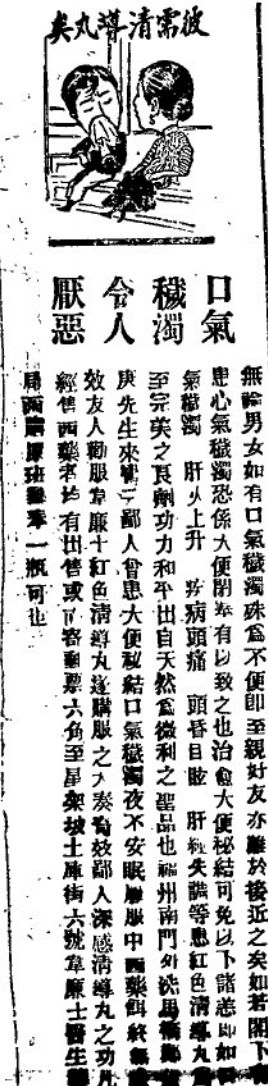 彼需清導丸矣
口氣
穢濁
令人
厭惡
無論男女如有口氣穢濁殊爲不便即至親好友亦難於接近之矣如若閣下
患心氣穢濁恐係大便閉塞有以致之也治愈大便秘結可免以下諸恙即如
氣穢濁 肝火上升 頭痛 頭昏目眩 肝經失調等患紅色清導丸
至完美之良劑功力和平出自天然爲微利之聖品也福州南門外洗馬橋
庚先生來書云鄙人曾患大便秘結口氣穢濁夜不安眠屢服中西藥餌終無
效友人勸服韋廉士紅色清導丸遂購服之大奏奇效鄙人深感清導丸之功凡
經售西藥者均有出售或可寄郵票六角至星架坡土庫街六號韋廉士醫生藥
局函購原班郵奉一瓶可也